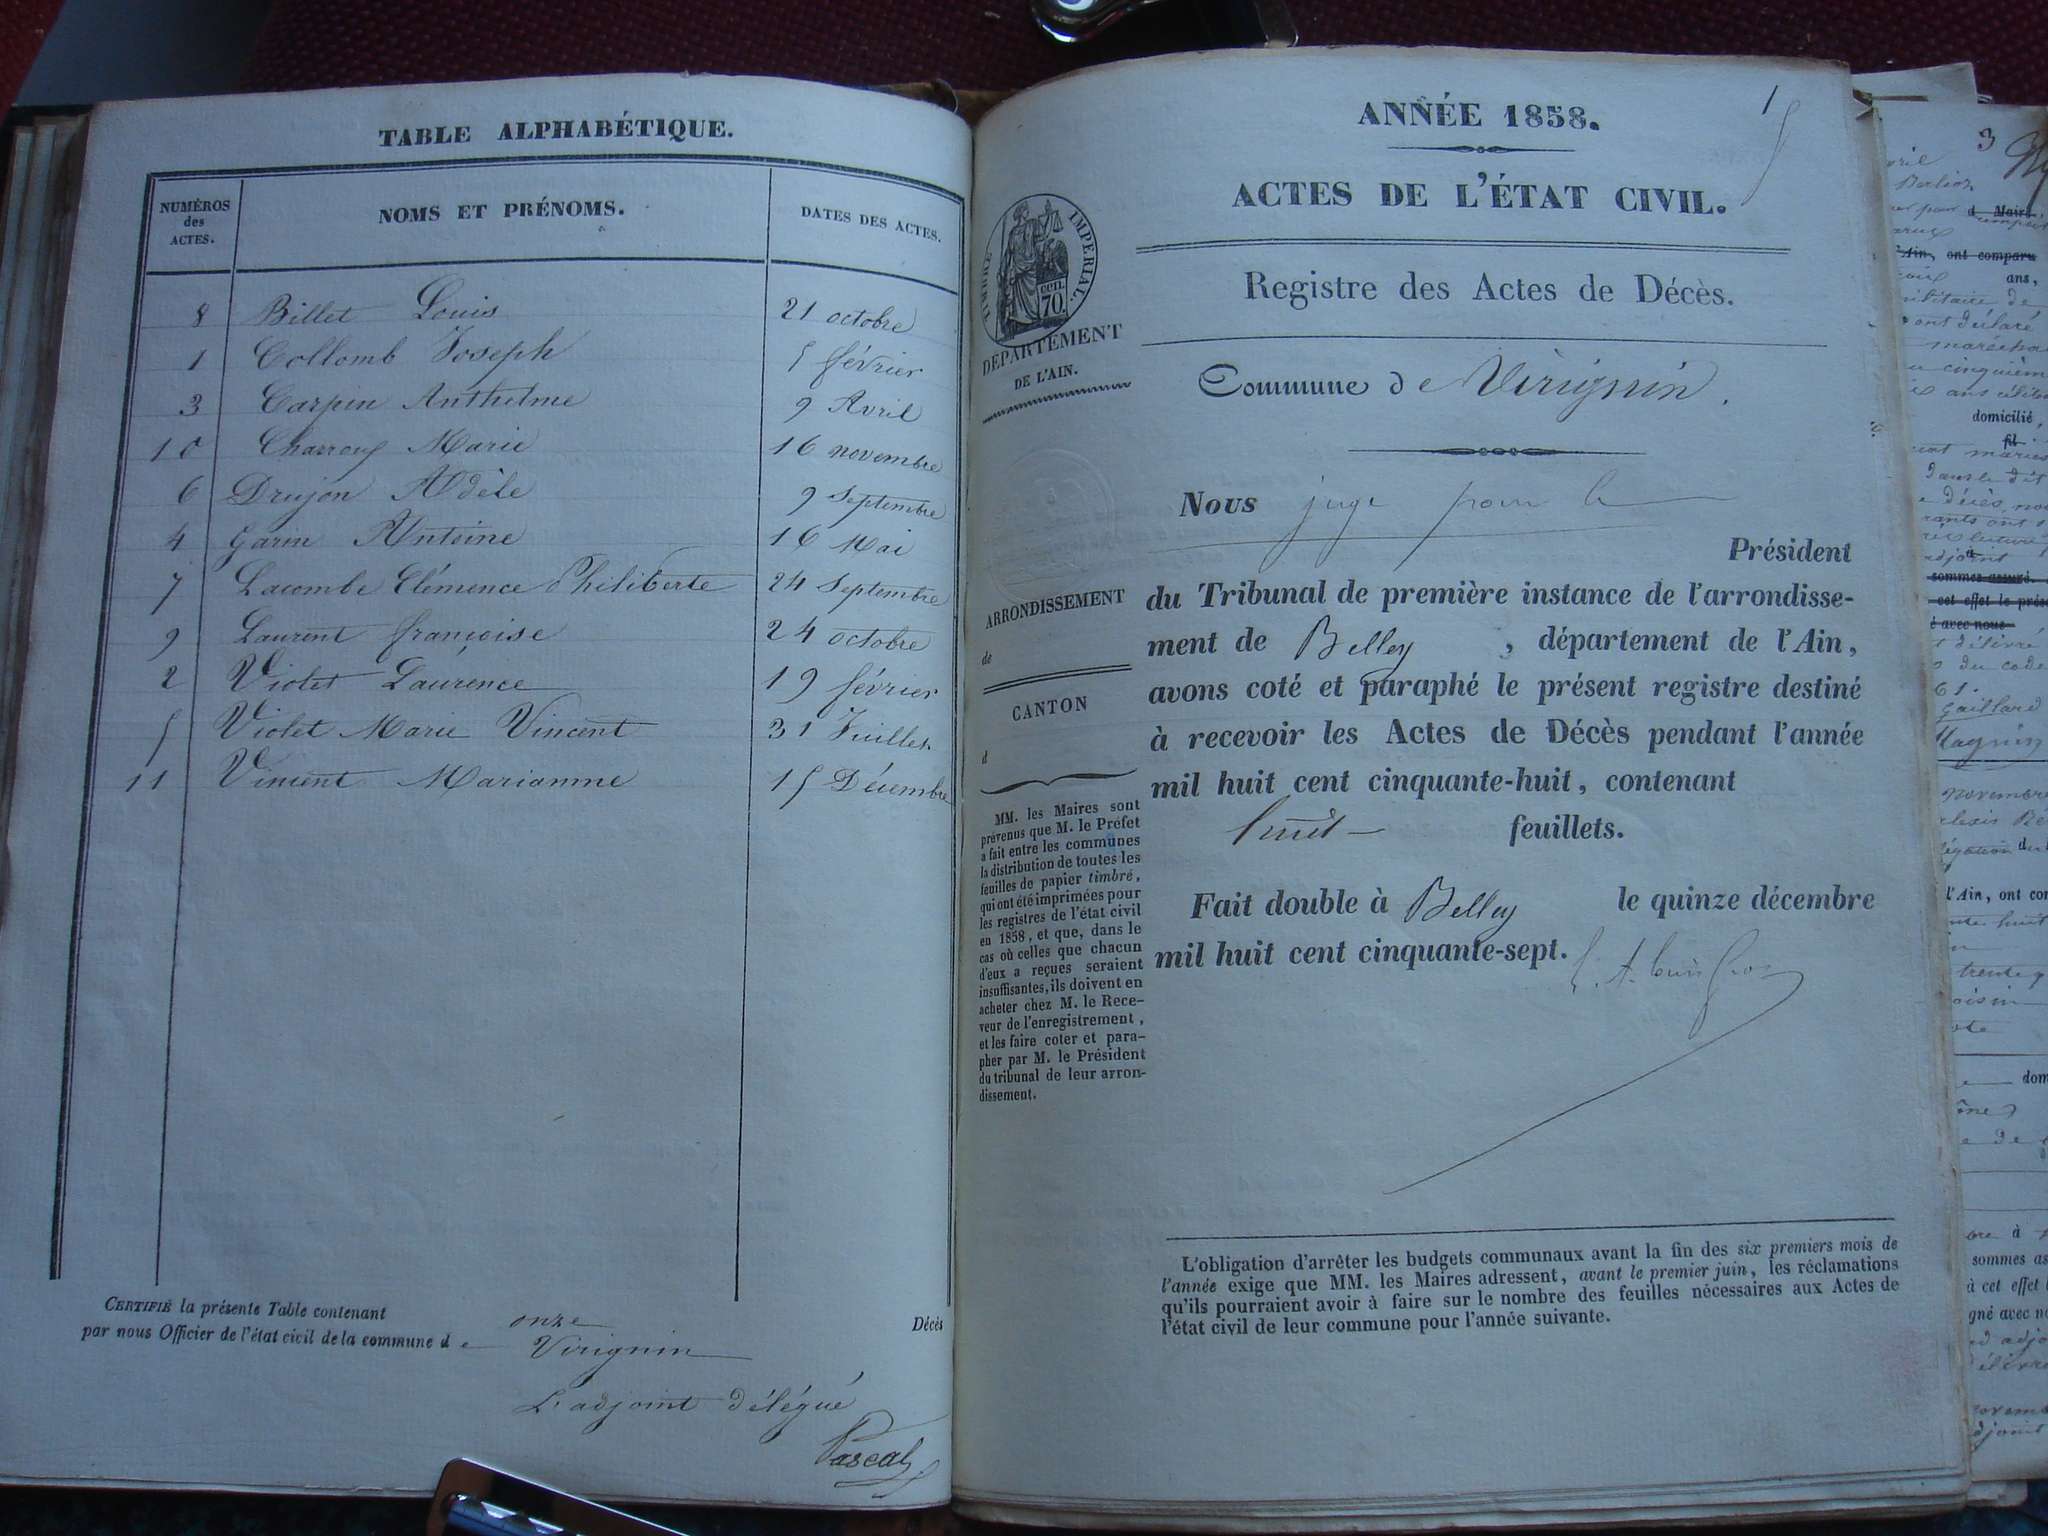 TABLE ALPHABÉTIQUE.
NUMÉROS des ACTES. NOMS ET PRÉNOMS. DATES DES ACTES.
8 Billet Louis 21 octobre
1 Collomb Joseph 5 février
3 Carpin Anthelme 9 Avril
10 Charrouy Marie 16 novembre
6 Drujon Adèle 9 Septembre
4 Garin Antoine 16 Mai
7 Lacombe Clémence Philiberte 24 Septembre
9 Laurent françoise 24 octobre
2 Violet Laurence 19 février
5 Violet Marie Vincent 31 Juillet
11 Vincent Marianne 15 Décembre
CERTIFIÉ la présente Table contenant onze Décès
par nous Officier de l'état civil de la commune de Virignin
L'adjoint délégué
Pascal
1
ANNÉE 1858.
ACTES DE L'ÉTAT CIVIL.
TIMBRE IMPÉRIAL.
CEN. 70.
DÉPARTEMENT
DE L'AIN.
Registre des Actes de Décès.
Commune de Virignin.
Nous juge pour le
Président
du Tribunal de première instance de l'arrondisse-
ment de Belley, département de l'Ain,
avons coté et paraphé le présent registre destiné
à recevoir les Actes de Décès pendant l'année
mil huit cent cinquante-huit, contenant
huit feuillets.
Fait double à Belley le quinze décembre
mil huit cent cinquante-sept.
ARRONDISSEMENT
de
CANTON
d
MM. les Maires sont
prévenus que M. le Préfet
a fait entre les communes
la distribution de toutes les
feuilles de papier timbré,
qui ont été imprimées pour
les registres de l'état civil
en 1858, et que, dans le
cas où celles que chacun
d'eux a reçues seraient
insuffisantes, ils doivent en
acheter chez M. le Rece-
veur de l'enregistrement,
et les faire coter et para-
pher par M. le Président
du tribunal de leur arron-
dissement.
L'obligation d'arrêter les budgets communaux avant la fin des six premiers mois de
l'année exige que MM. les Maires adressent, avant le premier juin, les réclamations
qu'ils pourraient avoir à faire sur le nombre des feuilles nécessaires aux Actes de
l'état civil de leur commune pour l'année suivante.
3
d Maire
Ain, ont comparu
ans,
ont déclaré
cinquième
domicilié,
fil
sommes assuré.
cet effet le prés
é avec nous
du code
61.
Gaillard
Magnin
novembre
l'Ain, ont con
trente
dom
sommes as
à cet effet
gné avec no